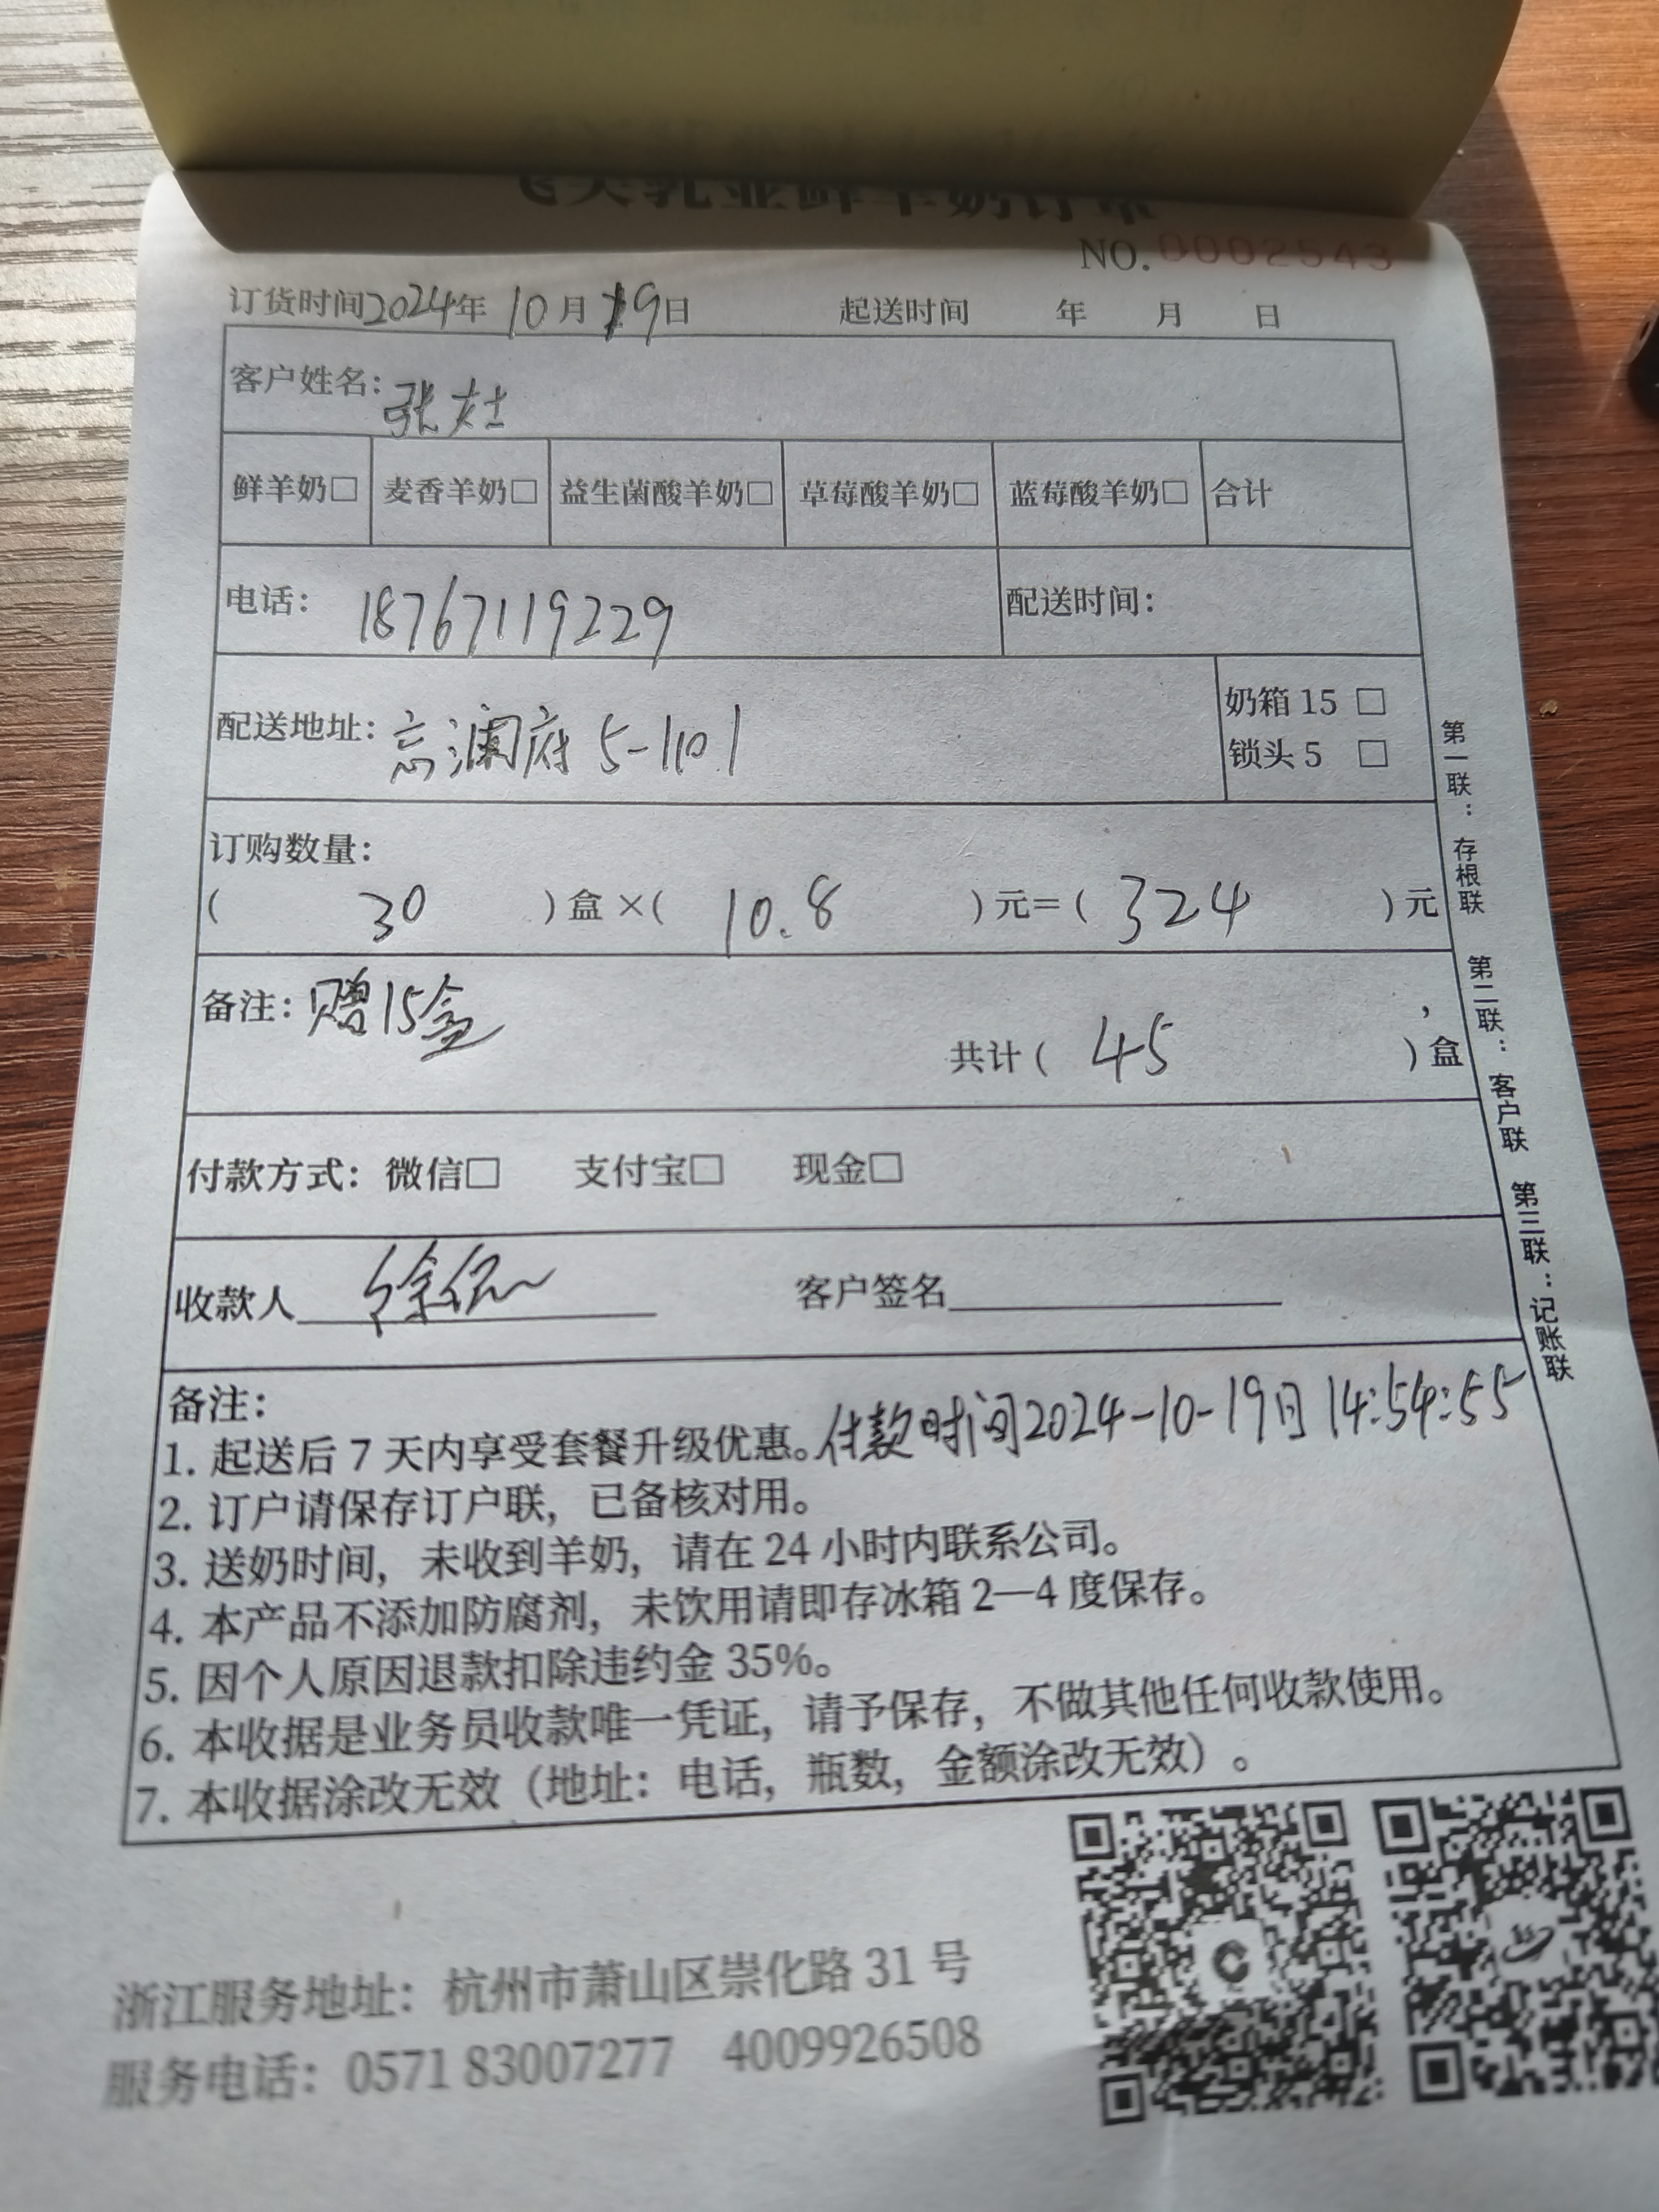 飞天乳业鲜羊奶订单
NO.0002543
订货时间2024年 10月19日 起送时间 年 月 日
客户姓名:
鲜羊奶□ 麦香羊奶□ 益生菌酸羊奶□ 草莓酸羊奶□ 蓝莓酸羊奶□ 合计
电话: 18767119229 配送时间:
配送地址: 澜府 5-1101
奶箱 15 □
锁头 5 □
订购数量:
( 30 )盒 ×( 10.8 )元=( 324 )元
备注: 赠15盒
共计( 45 )盒
付款方式: 微信□ 支付宝□ 现金□
收款人 徐 客户签名
备注:
1. 起送后 7 天内享受套餐升级优惠。付款时间2024-10-19日 14:54:55
2. 订户请保存订户联，已备核对用。
3. 送奶时间，未收到羊奶，请在 24 小时内联系公司。
4. 本产品不添加防腐剂，未饮用请即存冰箱 2—4 度保存。
5. 因个人原因退款扣除违约金 35%。
6. 本收据是业务员收款唯一凭证，请予保存，不做其他任何收款使用。
7. 本收据涂改无效（地址：电话，瓶数，金额涂改无效）。
第一联：存根联 第二联：客户联 第三联：记账联
浙江服务地址：杭州市萧山区崇化路 31 号
服务电话：0571 83007277 4009926508